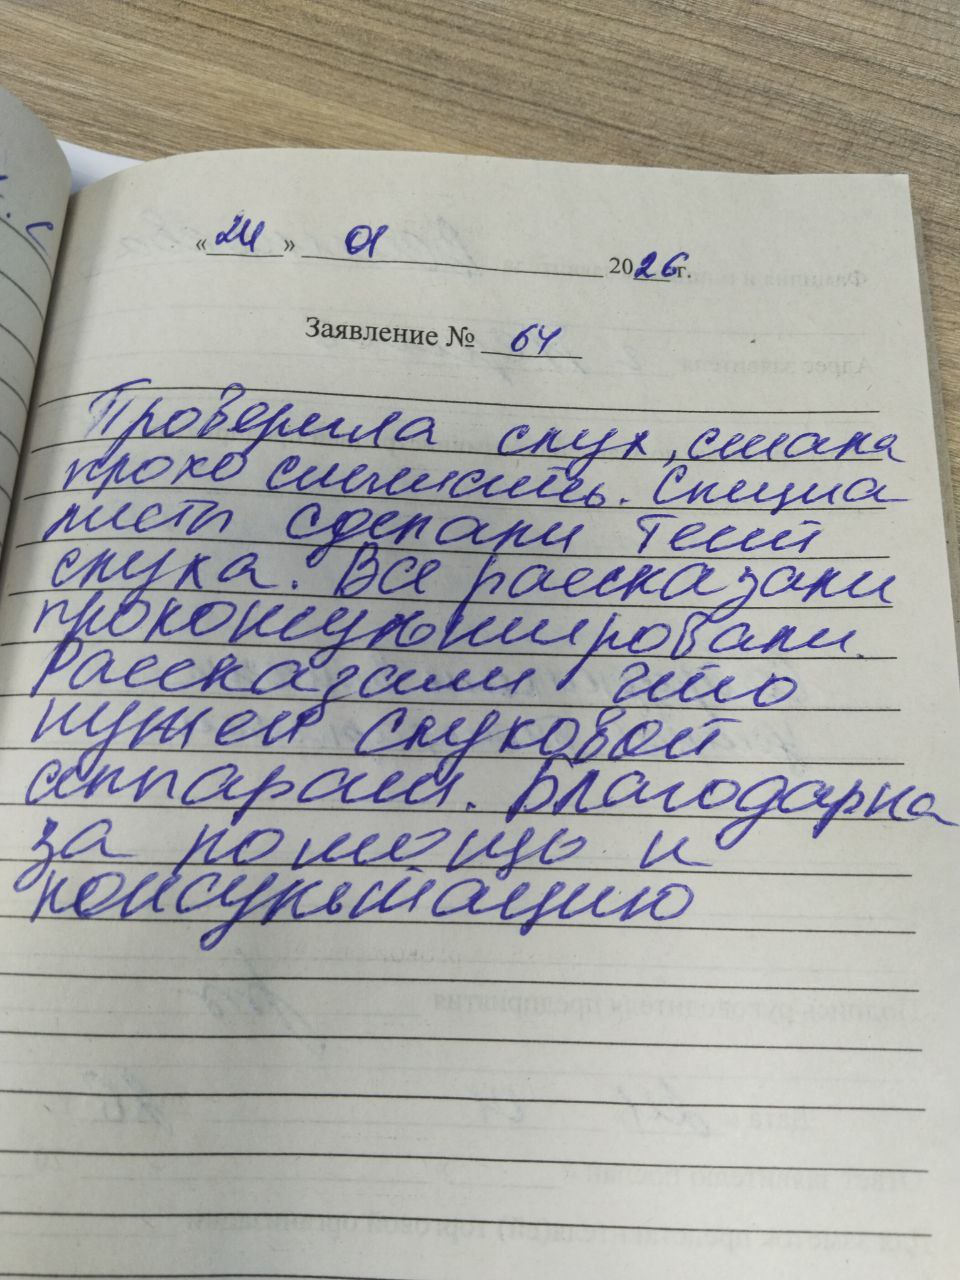 «24» 01 2026г.
Заявление № 64
Проверила слух, стала
плохо слышать. Специа
листы сделали тест
слуха. Все рассказали
проконсультировали.
Рассказали что
нужен слуховой
аппарат. Благодарна
за помощь и
консультацию